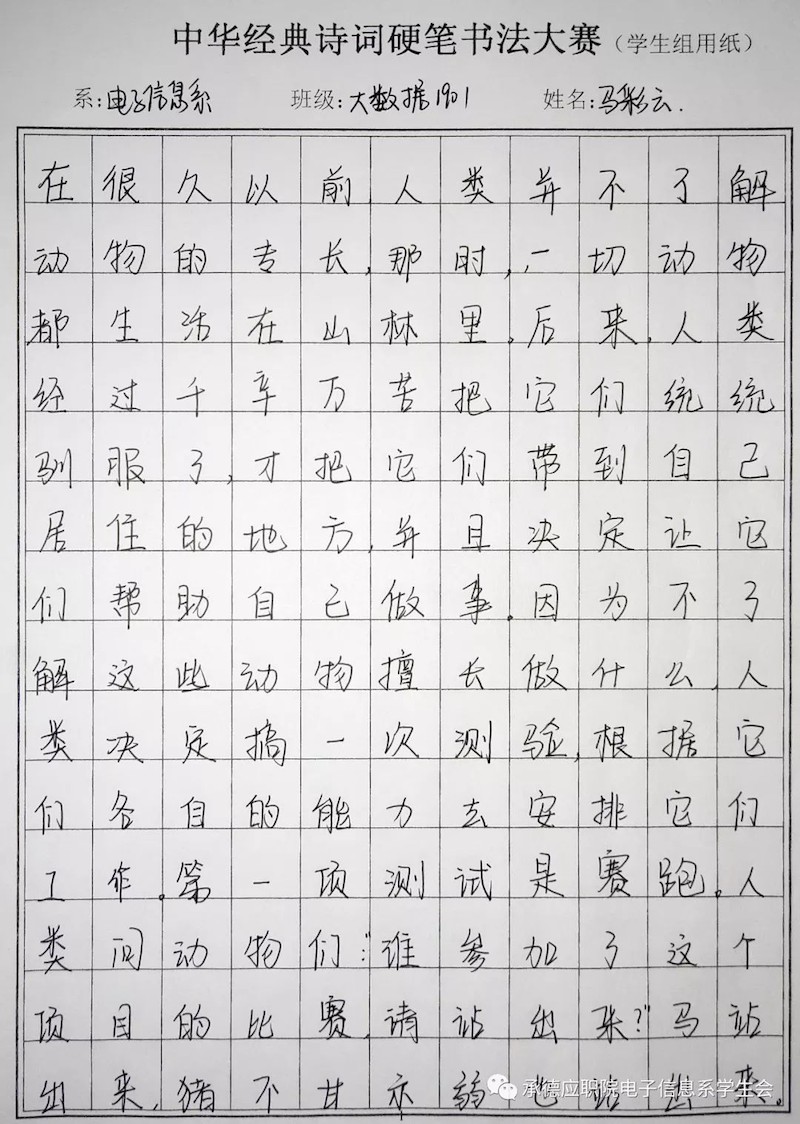 中华经典诗词硬笔书法大赛（学生组用纸）
系：电子信息系 班级：大数据1901 姓名：马彩云.
在很久以前，人类并不了解
动物的专长，那时，一切动物
都生活在山林里。后来，人类
经过千辛万苦把它们统统
驯服了，才把它们带到自己
居住的地方，并且决定让它
们帮助自己做事。因为不了
解这些动物擅长做什么，人
类决定搞一次测验，根据它
们各自的能力去安排它们
工作。第一项测试是赛跑。人
类问动物们：“谁参加了这个
项目的比赛，请站出来？”马站
出来，猪不甘示弱也站出来。
承德应职院电子信息系学生会